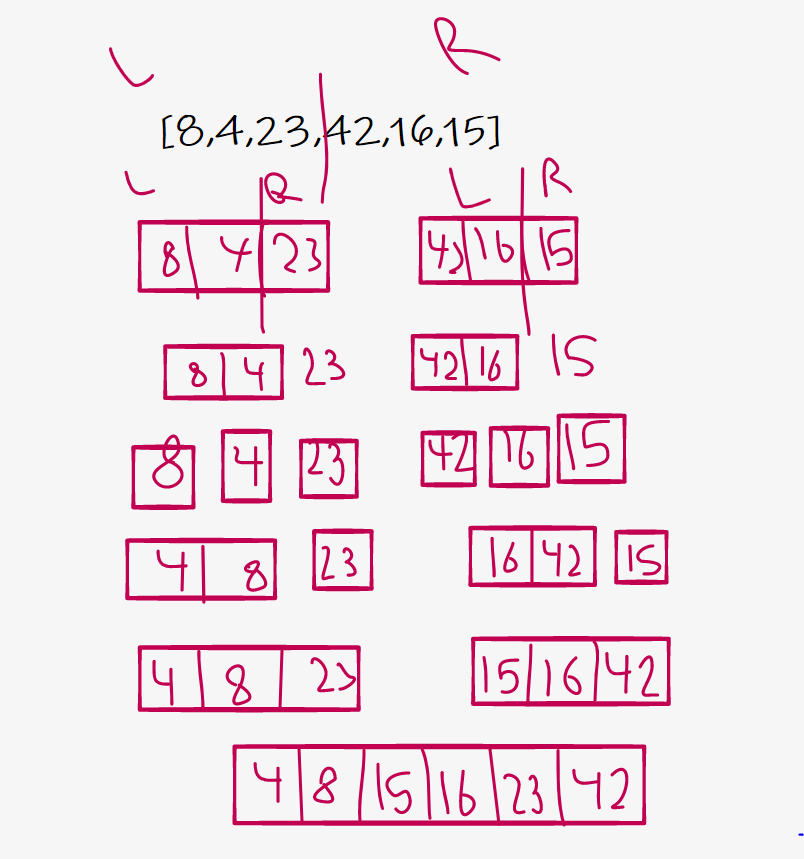 L R
[8,4,23,42,16,15]
L R L R
8 4 23 42 16 15
8 4 23 42 16 15
8 4 23 42 16 15
4 8 23 16 42 15
4 8 23 15 16 42
4 8 15 16 23 42